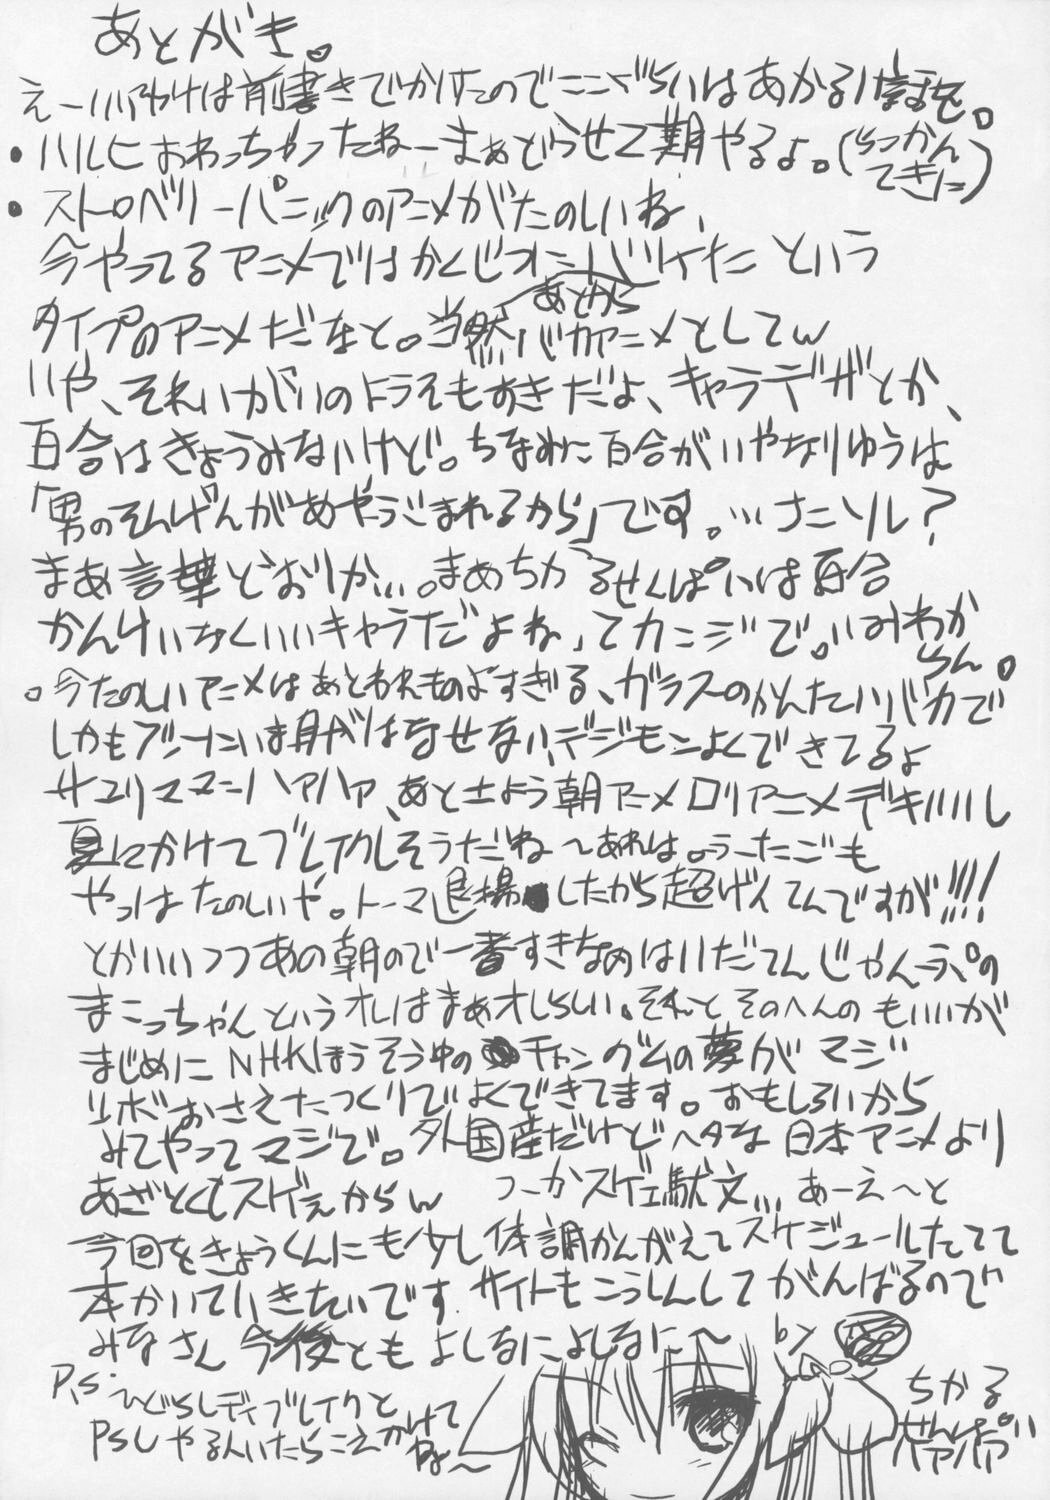 あとがき。
えーいいわけは前書きでかけたのでここぐらいはあかるい話を。
・ハルヒおわっちゃったねーまぁどうせ2期やるよ。(らっかんてきに)
・ストロベリーパニックのアニメがたのしいね、
今やってるアニメではかくじつにバケたという
タイプのアニメだなと。当然あとからバカアニメとしてw
いや、それいがいのトコらもすきだよ、キャラデザとか、
百合はきょうみないけど。ちなみに百合がいやなりゆうは
「男のそんげんがあやうごまれるから」です。…ナニソレ?
まあ言葉どおりか…。まあちかるせんぱいは百合
かんけいなくいいキャラだよね、てカンジで。いみわからん。
。今たのしいアニメはあとわれものよすぎる、ガラスのかんたいバカで
しかもブソーにいま身がはなせない、デジモンよくできてるよ
サユリママンハァハァ、あと土よう朝アニメロリアニメデキいいし
夏にかけてブレイクしそうだね〜あれは。うーたごも
やっぱたのしいや。トーマ退場したから超げんてんですが!!!!
とかいいつつあの朝ので一番すきなのはいだてんじゃんぷの
まこっちゃんというオレはまぁオレらしい。それとそのへんのもいいが
まじめにNHKほうそう中のチャングムの夢がマジ
リボおさえたつくりでよくできてます。おもしろいから
みてやってマジで。外国産だけどヘタな日本アニメより
あざとくもスゲぇからw つーかスゲェ駄文… あーえ〜と
今回をきょうくんにも少し体調かんがえてスケジュールたてて
本かいていきたいです。サイトもこうしんしてがんばるので
みなさん今後ともよしなによしなに〜
P.S. ひぐらしデイブレイクと
PSUやる人いたらこえかけて
ね〜
by
ちかる
せんぱい
ハァハァ